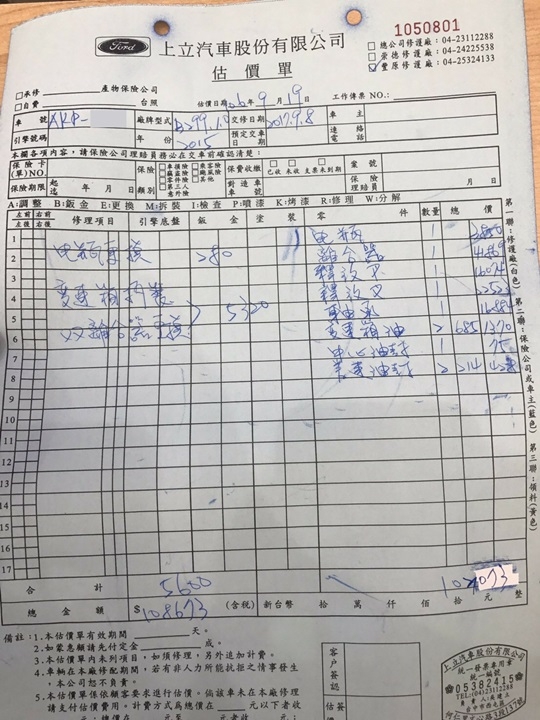 Ford 上立汽車股份有限公司
估價單
1050801
□總公司修護廠：04-23112288
□崇德修護廠：04-24225538
豐原修護廠：04-25324133
□承修 產物保險公司
□自費 台照 估價日 106年9月19日 工作傳票NO.：
車號 AKP- 廠牌型式 交修日期 2017.9.8 車主
引擎號碼 年份 2015 預定交車日期 連絡電話
本欄各項內容，請保險公司理賠員務必在交車前確認清楚：
保險卡(單)NO. 保險類別 □車損險 □乘客險 □竊盜險 □颱風險 □零件險 □其他 □第三人意外險 保費收繳 □已收 □未收 □支票未到期 案號
保險期限 起迄 年 月 日 對造車號 保險理賠員
A：調整 B：鈑金 E：更換 M：拆裝 I：檢查 P：噴漆 K：烤漆 R：修理 W：分解
左前 右前 左後 右後 修理項目 引擎底盤 鈑金 塗裝 零件 數量 總價
1 电瓶 1
2 电瓶更換 280 離合器 1
3 釋放叉 1
4 變速箱拆裝 釋放叉 1
5 5320 1
6 双離合器更換 變速箱油 2 685 1370
7 中心油封 1 75
8 差速油封 2 214 428
9
10
11
12
13
14
15
16
17
合計 5600
總金額 $108673 (含稅) 新台幣 拾 萬 仟 佰 拾 元整
第一聯：修護廠(白色) 第二聯：保險公司或車主(藍色) 第三聯：領料(黃色)
備註：1.本估價單有效期間 天。
2.如蒙惠顧請先付定金 成。
3.本估價單內未列項目，如須修理，另外追加計費。
4.車輛在本廠修配期間，若有非人力所能抗拒之情事發生，本公司恕不負責。
5.本估價單係依顧客要求進行估價。倘該車未在本廠修理
請支付估價費用。計費方式為總價在 元以下者收
客戶簽認
上立汽車股份有限公司
統一發票專用章
統一編號
05382415
TEL:(04)23112288